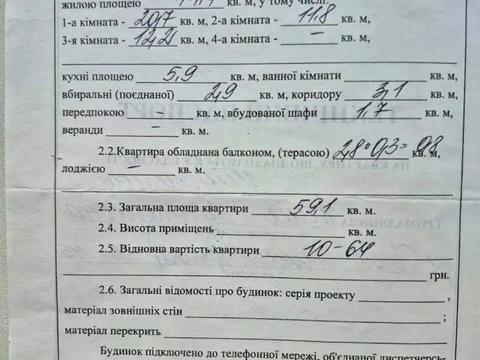 жилою площею кв. м, у тому числі:
1-а кімната - 20,7 кв. м, 2-а кімната - 11,8 кв. м,
3-я кімната - 12,21 кв. м, 4-а кімната - – кв. м,
кухні площею 5,9 кв. м, ванної кімнати кв. м,
вбиральні (поєднаної) 2,9 кв. м, коридору 3,1 кв. м,
передпокою – кв. м, вбудованої шафи 1,7 кв. м,
веранди – кв. м.
2.2.Квартира обладнана балконом, (терасою) 2,8*0,3= 0,8 кв. м,
лоджією – кв. м.
2.3. Загальна площа квартири 59,1 кв. м.
2.4. Висота приміщень кв. м.
2.5. Відновна вартість квартири 10-64
грн.
2.6. Загальні відомості про будинок: серія проекту ,
матеріал зовнішніх стін ;
матеріал перекрить
Будинок підключено до телефонної мережі, об'єднаної диспетчерсь-